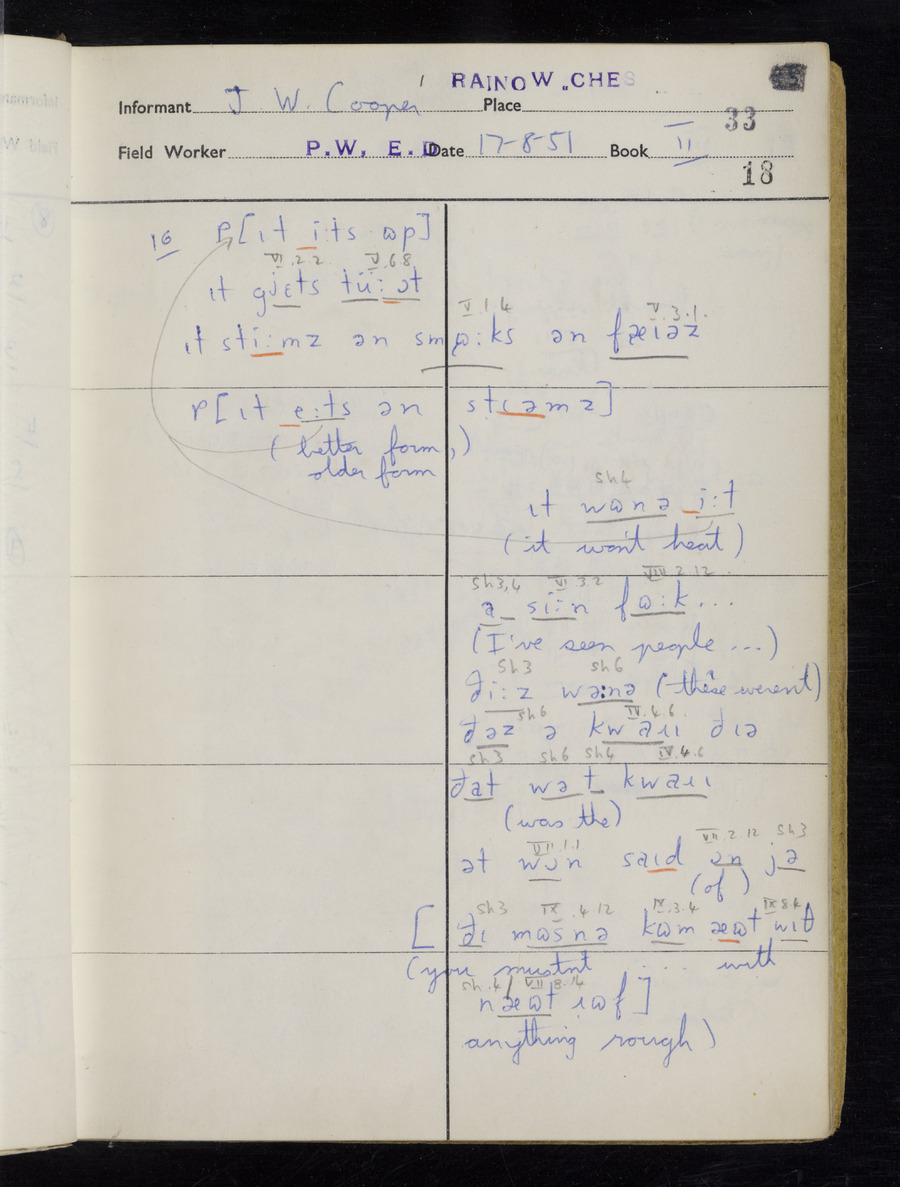 RAINOW .CHES
Informant J. W. Cooper Place
33
Field Worker P.W. E.D Date 17-8-51 Book II
18
16 P[ɪt i:ts ɷp]
VI.2.2 V.6.8
ɪt gjɛts tü:ət
V.1.4 V.3.1.
ɪt sti:mz ən smɷ:ks ən fæɪəz
P[ɪt e:ts ən stɪəmz]
(better form,)
older form
sh4
ɪt wɷnə i:t
(it won't heat)
sh3,4 VI.3.2 VIII.2.12.
ə si:n fɷ:k ...
(I've seen people ...)
sh3 sh6
ði:z wə:nə (these weren't)
sh6 IV.4.6.
ðəz ə kwaɹɪ ðɪə
sh3 sh6 sh4 IV.4.6
ðat wə t kwaɹɪ
(was the)
VII.1.1 VII.2.12 sh3
ət wʊn saɪd ən jə
(of)
sh3 IX.4.12 IX.3.4 IX.8.
[ðɪ mɷsnə kɷm æɷt wɪð
(you mustnt ... with
sh.4/ VII 8.14
næɷt ɹɷf]
anything rough)